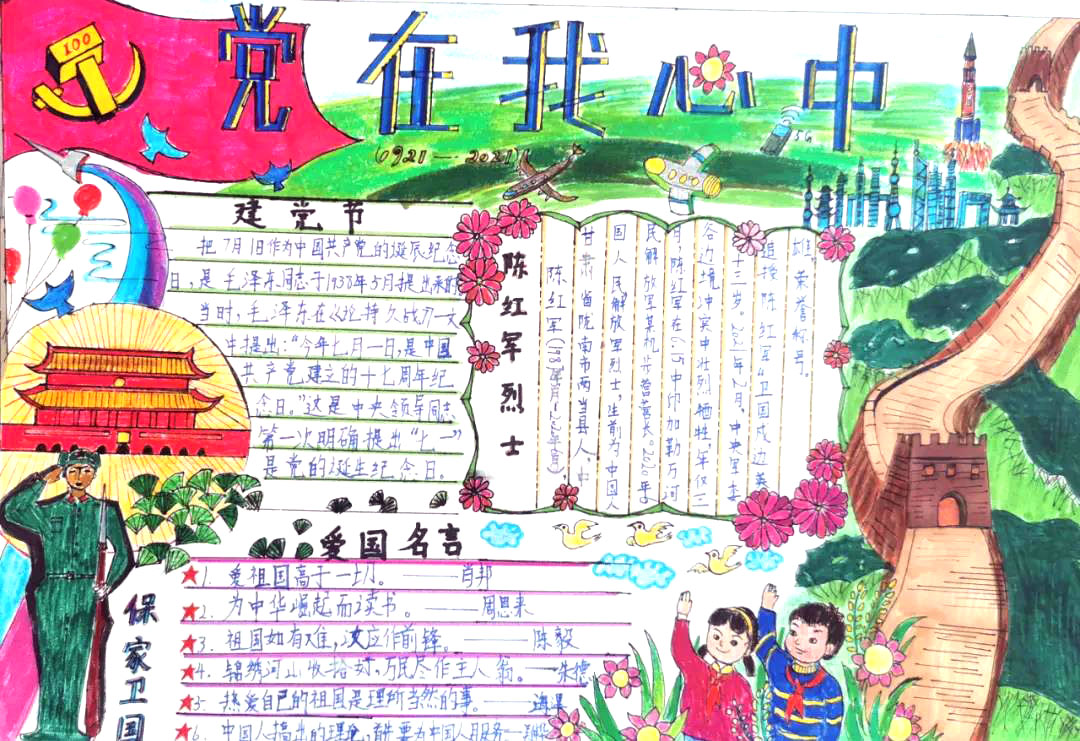 100
党在我心中
(1921—2021)
5G
建党节
把7月1日作为中国共产党的诞辰纪念
日,是毛泽东同志于1938年5月提出来的
当时,毛泽东在《论持久战》一文
中提出:“今年七月一日,是中国
共产党建立的十七周年纪
念日。”这是中央领导同志
第一次明确提出“七一”
是党的诞生纪念日。
陈红军烈士
陈红军(1987年
甘肃省陇南市两当县人,中
国人民解放军烈士,生前为中国人
民解放军某机步营营长。2020年
陈红军在6.15中印加勒万河
谷边境冲突中壮烈牺牲,年仅三
十三岁。2021年2月,中央军委
追授陈红军“卫国戍边英
雄”荣誉称号。
爱国名言
1. 爱祖国高于一切。——肖邦
2. 为中华崛起而读书。——周恩来
3. 祖国如有难,汝应作前锋。——陈毅
4. 锦绣河山收拾好,万民尽作主人翁。——朱德
5. 热爱自己的祖国是理所当然的事。——海涅
6. 中国人搞出的理论,首要为中国人服务
保家卫国